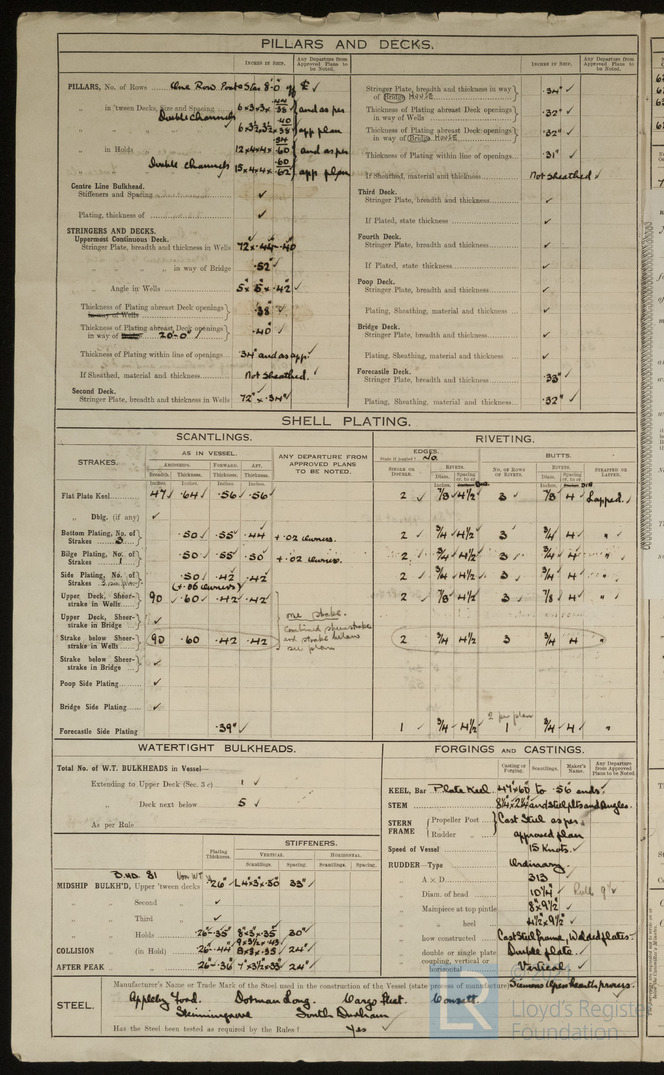 PILLARS AND DECKS.
INCHES IN SHIP.
Any Departure from Approved Plans to be Noted.
PILLARS, No. of Rows
„ in 'tween Decks, Size and Spacing
Double Channels
6 x 3 x 3 x
and as per
app plan
„ in Holds
12 x 4 x 4 x .60
and as per
Double Channels
15 x 4 x 4 x .62
app plan
Centre Line Bulkhead.
Stiffeners and Spacing ✓
Plating, thickness of ✓
STRINGERS AND DECKS.
Uppermost Continuous Deck.
Stringer Plate, breadth and thickness in Wells 72 x .44 - .40
„ „ „ in way of Bridge .52" ✓
Angle in Wells 5" x 5" x .42 ✓
Thickness of Plating abreast Deck openings in way of Wells .38" ✓
Thickness of Plating abreast Deck openings in way of 20'-0" .40" ✓
Thickness of Plating within line of openings .34" and as app. ✓
If Sheathed, material and thickness Not Sheathed. ✓
Second Deck.
Stringer Plate, breadth and thickness in Wells 72" x .34" ✓
INCHES IN SHIP.
Any Departure from Approved Plans to be Noted.
Stringer Plate, breadth and thickness in way of Bridge House .34" ✓
Thickness of Plating abreast Deck openings in way of Wells .32" ✓
Thickness of Plating abreast Deck openings in way of Bridge House .32" ✓
Thickness of Plating within line of openings .31" ✓
If Sheathed, material and thickness Not Sheathed ✓
Third Deck.
Stringer Plate, breadth and thickness ✓
If Plated, state thickness ✓
Fourth Deck.
Stringer Plate, breadth and thickness ✓
If Plated, state thickness ✓
Poop Deck.
Stringer Plate, breadth and thickness ✓
Plating, Sheathing, material and thickness ✓
Bridge Deck.
Stringer Plate, breadth and thickness ✓
Plating, Sheathing, material and thickness ✓
Forecastle Deck.
Stringer Plate, breadth and thickness .33" ✓
Plating, Sheathing, material and thickness .32" ✓
SHELL PLATING.
SCANTLINGS.
RIVETING.
STRAKES.
AS IN VESSEL.
AMIDSHIPS. FORWARD. AFT.
Breadth. Thickness. Thickness. Thickness.
Inches Inches Inches Inches
ANY DEPARTURE FROM APPROVED PLANS TO BE NOTED.
EDGES.
State if joggled? No.
SINGLE OR DOUBLE.
RIVETS.
Diam. Spacing cr. to cr.
BUTTS.
NO. OF ROWS OF RIVETS.
RIVETS.
Diam. Spacing cr. to cr.
STRAPPED OR LAPPED.
Flat Plate Keel 47 ✓ .64 ✓ .56 ✓ .56 ✓ 2 ✓ 7/8 ✓ 4 1/2 ✓ 3 ✓ 7/8 ✓ 4 ✓ Lapped. ✓
„ Dblg. (if any) ✓
Bottom Plating, No. of Strakes 3 .50 ✓ .55 ✓ .44 + .02 Owners. 2 ✓ 3/4 ✓ 4 1/2 ✓ 3 ✓ 3/4 ✓ 4 ✓ „
Bilge Plating, No. of Strakes 1 .50 ✓ .55 ✓ .50 + .02 Owners. 2 ✓ 3/4 ✓ 4 1/2 ✓ 3 3/4 ✓ 4 ✓ „
Side Plating, No. of Strakes .50 .42 .42 2 ✓ 3/4 ✓ 4 1/2 ✓ 3 ✓ 3/4 ✓ 4 „
(+.06 Owners)
Upper Deck, Sheer-strake in Wells 90 .60 ✓ .42 ✓ .42 ✓ 2 ✓ 7/8 ✓ 4 1/2 3 7/8 ✓ 4 „
Upper Deck, Sheer-strake in Bridge ✓
one strake.
combined sheerstrake
and strake below
see plan
Strake below Sheer-strake in Wells 90 .60 .42 .42 2 3/4 4 1/2 3 3/4 4 „
Strake below Sheer-strake in Bridge ✓
Poop Side Plating ✓
Bridge Side Plating ✓
2 per plan
Forecastle Side Plating .39" ✓ 1 ✓ 3/4 ✓ 4 1/2 ✓ 1 3/4 ✓ 4 ✓ „
WATERTIGHT BULKHEADS.
Total No. of W.T. BULKHEADS in Vessel—
Extending to Upper Deck (Sec. 3 c) 1 ✓
„ Deck next below 5 ✓
As per Rule
Plating Thickness.
STIFFENERS.
VERTICAL. HORIZONTAL.
Scantlings. Spacing. Scantlings. Spacing.
B.HD. 81 Non WT
MIDSHIP BULKH'D, Upper 'tween decks .26" 4 x 3 x .30 33" ✓
„ „ Second „ ✓
„ „ Third „ ✓
„ „ Holds .26-.35" 8 x 3 x .35 30"
COLLISION „ (in Hold) .26-.44 8 x 3 x .35 24"
AFTER PEAK „ „ .26-.36 7 x 3 1/2 x .33 24"
FORGINGS AND CASTINGS.
Casting or Forging. Scantlings. Maker's Name. Any Departure from Approved Plans to be Noted
KEEL, Bar Plate Keel. 47" x .60 to .56 ends.
STEM
STERN FRAME { Propeller Post Cast Steel as per
Rudder „ approved plan
Speed of Vessel 15 Knots. ✓
RUDDER—Type Ordinary.
„ A x D 313
„ Diam. of head 10 1/4" ✓
„ Mainpiece at top pintle 8 x 9 1/2 ✓
„ „ heel 4 1/2 x 9 1/2 ✓
„ how constructed Cast Steel frame, Welded plates.
„ double or single plate Double plate.
„ coupling, vertical or horizontal Vertical ✓
STEEL.
Manufacturer's Name or Trade Mark of the Steel used in the construction of the Vessel (state process of manufacture) Siemens Open hearth process.
Appleby Frod. Dorman Long. Cargo Fleet. Consett.
Skinningrove South Durham
Has the Steel been tested as required by the Rules? Yes ✓
LR
Lloyd's Register
Foundation